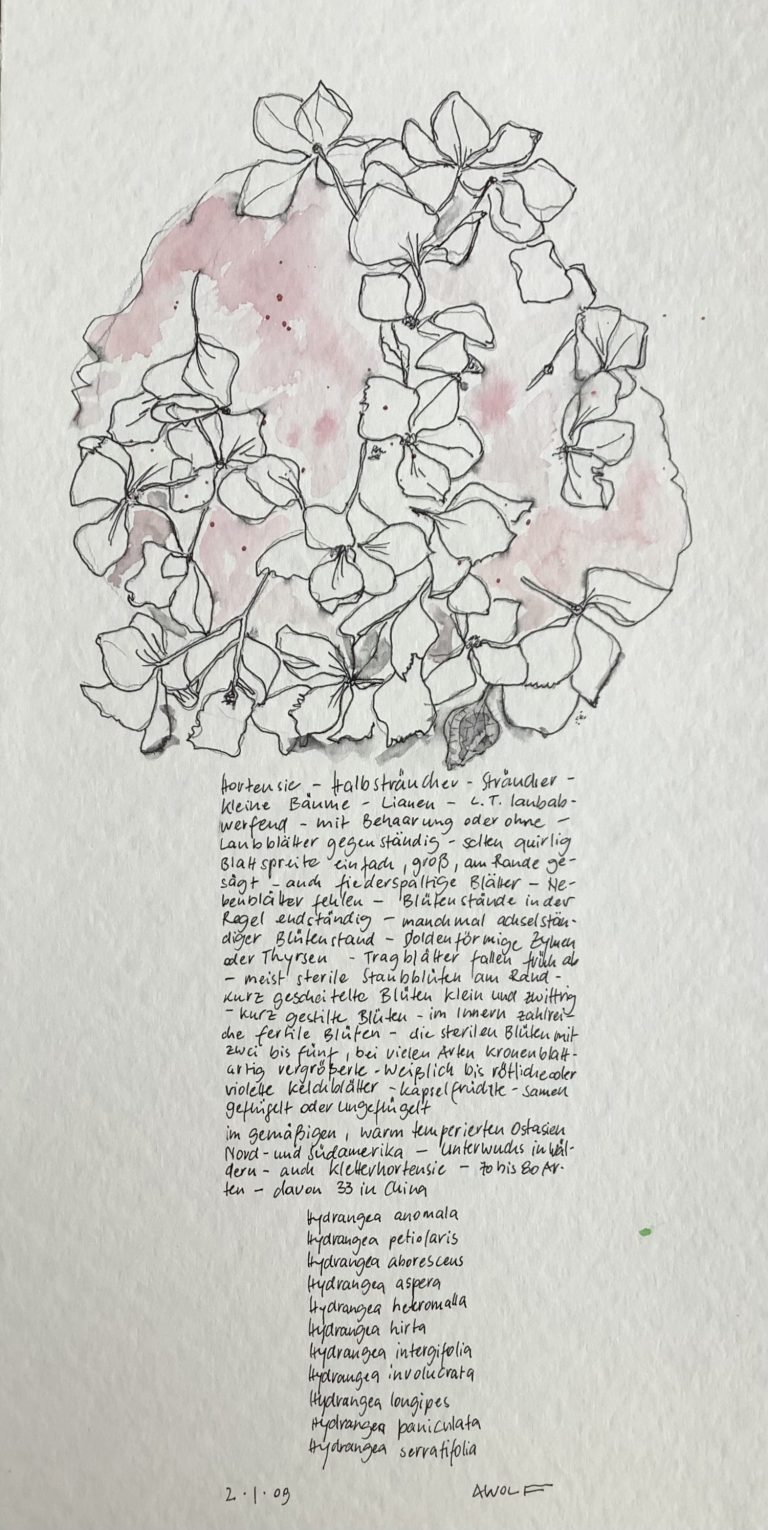 Hortensie – Halbsträucher – Sträucher –
kleine Bäume – Lianen – L.T. laubab-
werfend – mit Behaarung oder ohne –
Laubblätter gegenständig – selten quirlig
Blattspreite einfach, groß, am Rande ge-
sägt – auch fiederspaltige Blätter – Ne-
benblätter fehlen – Blütenstände in der
Regel endständig – manchmal achselstän-
diger Blütenstand – Doldenförmige Zymen
oder Thyrsen – Tragblätter fallen früh ab
– meist sterile Staubblüten am Rand –
kurz gescheitelte Blüten klein und zwittrig
– kurz gestilte Blüten – im Innern zahlrei-
che fertile Blüten – die sterilen Blüten mit
zwei bis fünf, bei vielen Arten kronenblatt-
artig vergrößerte – Weißlich bis rötliche oder
violette Kelchblätter – Kapselfrüchte – Samen
geflügelt oder ungeflügelt
im gemäßigen, warm temperierten Ostasien
Nord- und Südamerika – Unterwuchs in Wäl-
dern – auch Kletterhortensie – 70 bis 80 Ar-
ten – davon 33 in China
Hydrangea anomala
Hydrangea petiolaris
Hydrangea aborescens
Hydrangea aspera
Hydrangea hetromalla
Hydrangea hirta
Hydrangea intergifolia
Hydrangea involucrata
Hydrangea longipes
Hydrangea paniculata
Hydrangea serratifolia
2.1.09 AWOLF